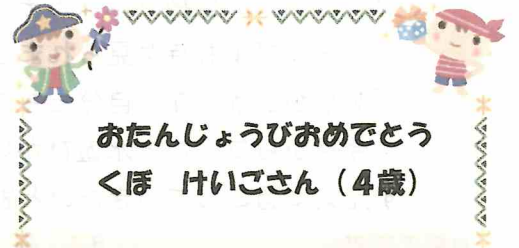 おたんじょうびおめでとう
くぼ　けいごさん（４歳）